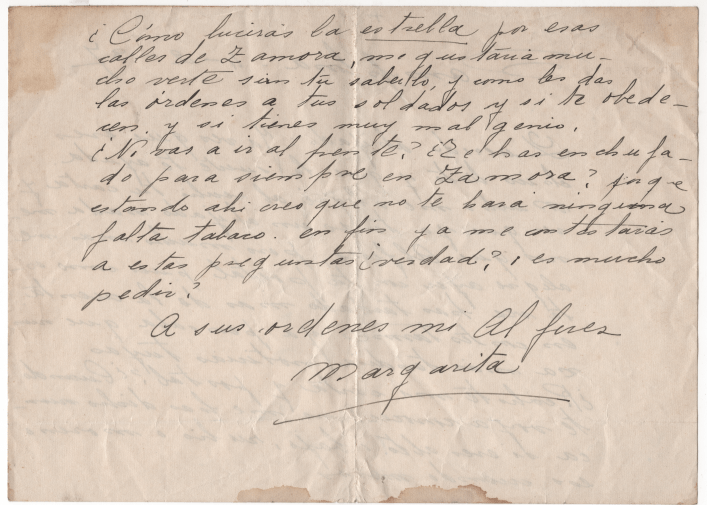 ¿Cómo lucirás la estrella por esas
calles de Zamora, me gustaria mu-
cho verte sin tu saberlo, y como les das
las órdenes a tus soldados y si te obede-
cen. y si tienes muy mal genio.
¿No vas a ir al frente? ¿Te has enchufa-
do para siempre en Zamora? porque
estando ahi creo que no te hará ninguna
falta tabaco. en fin ya me contestarás
a estas preguntas ¿verdad?, es mucho
pedir?
A sus ordenes mi Alferez
Margarita